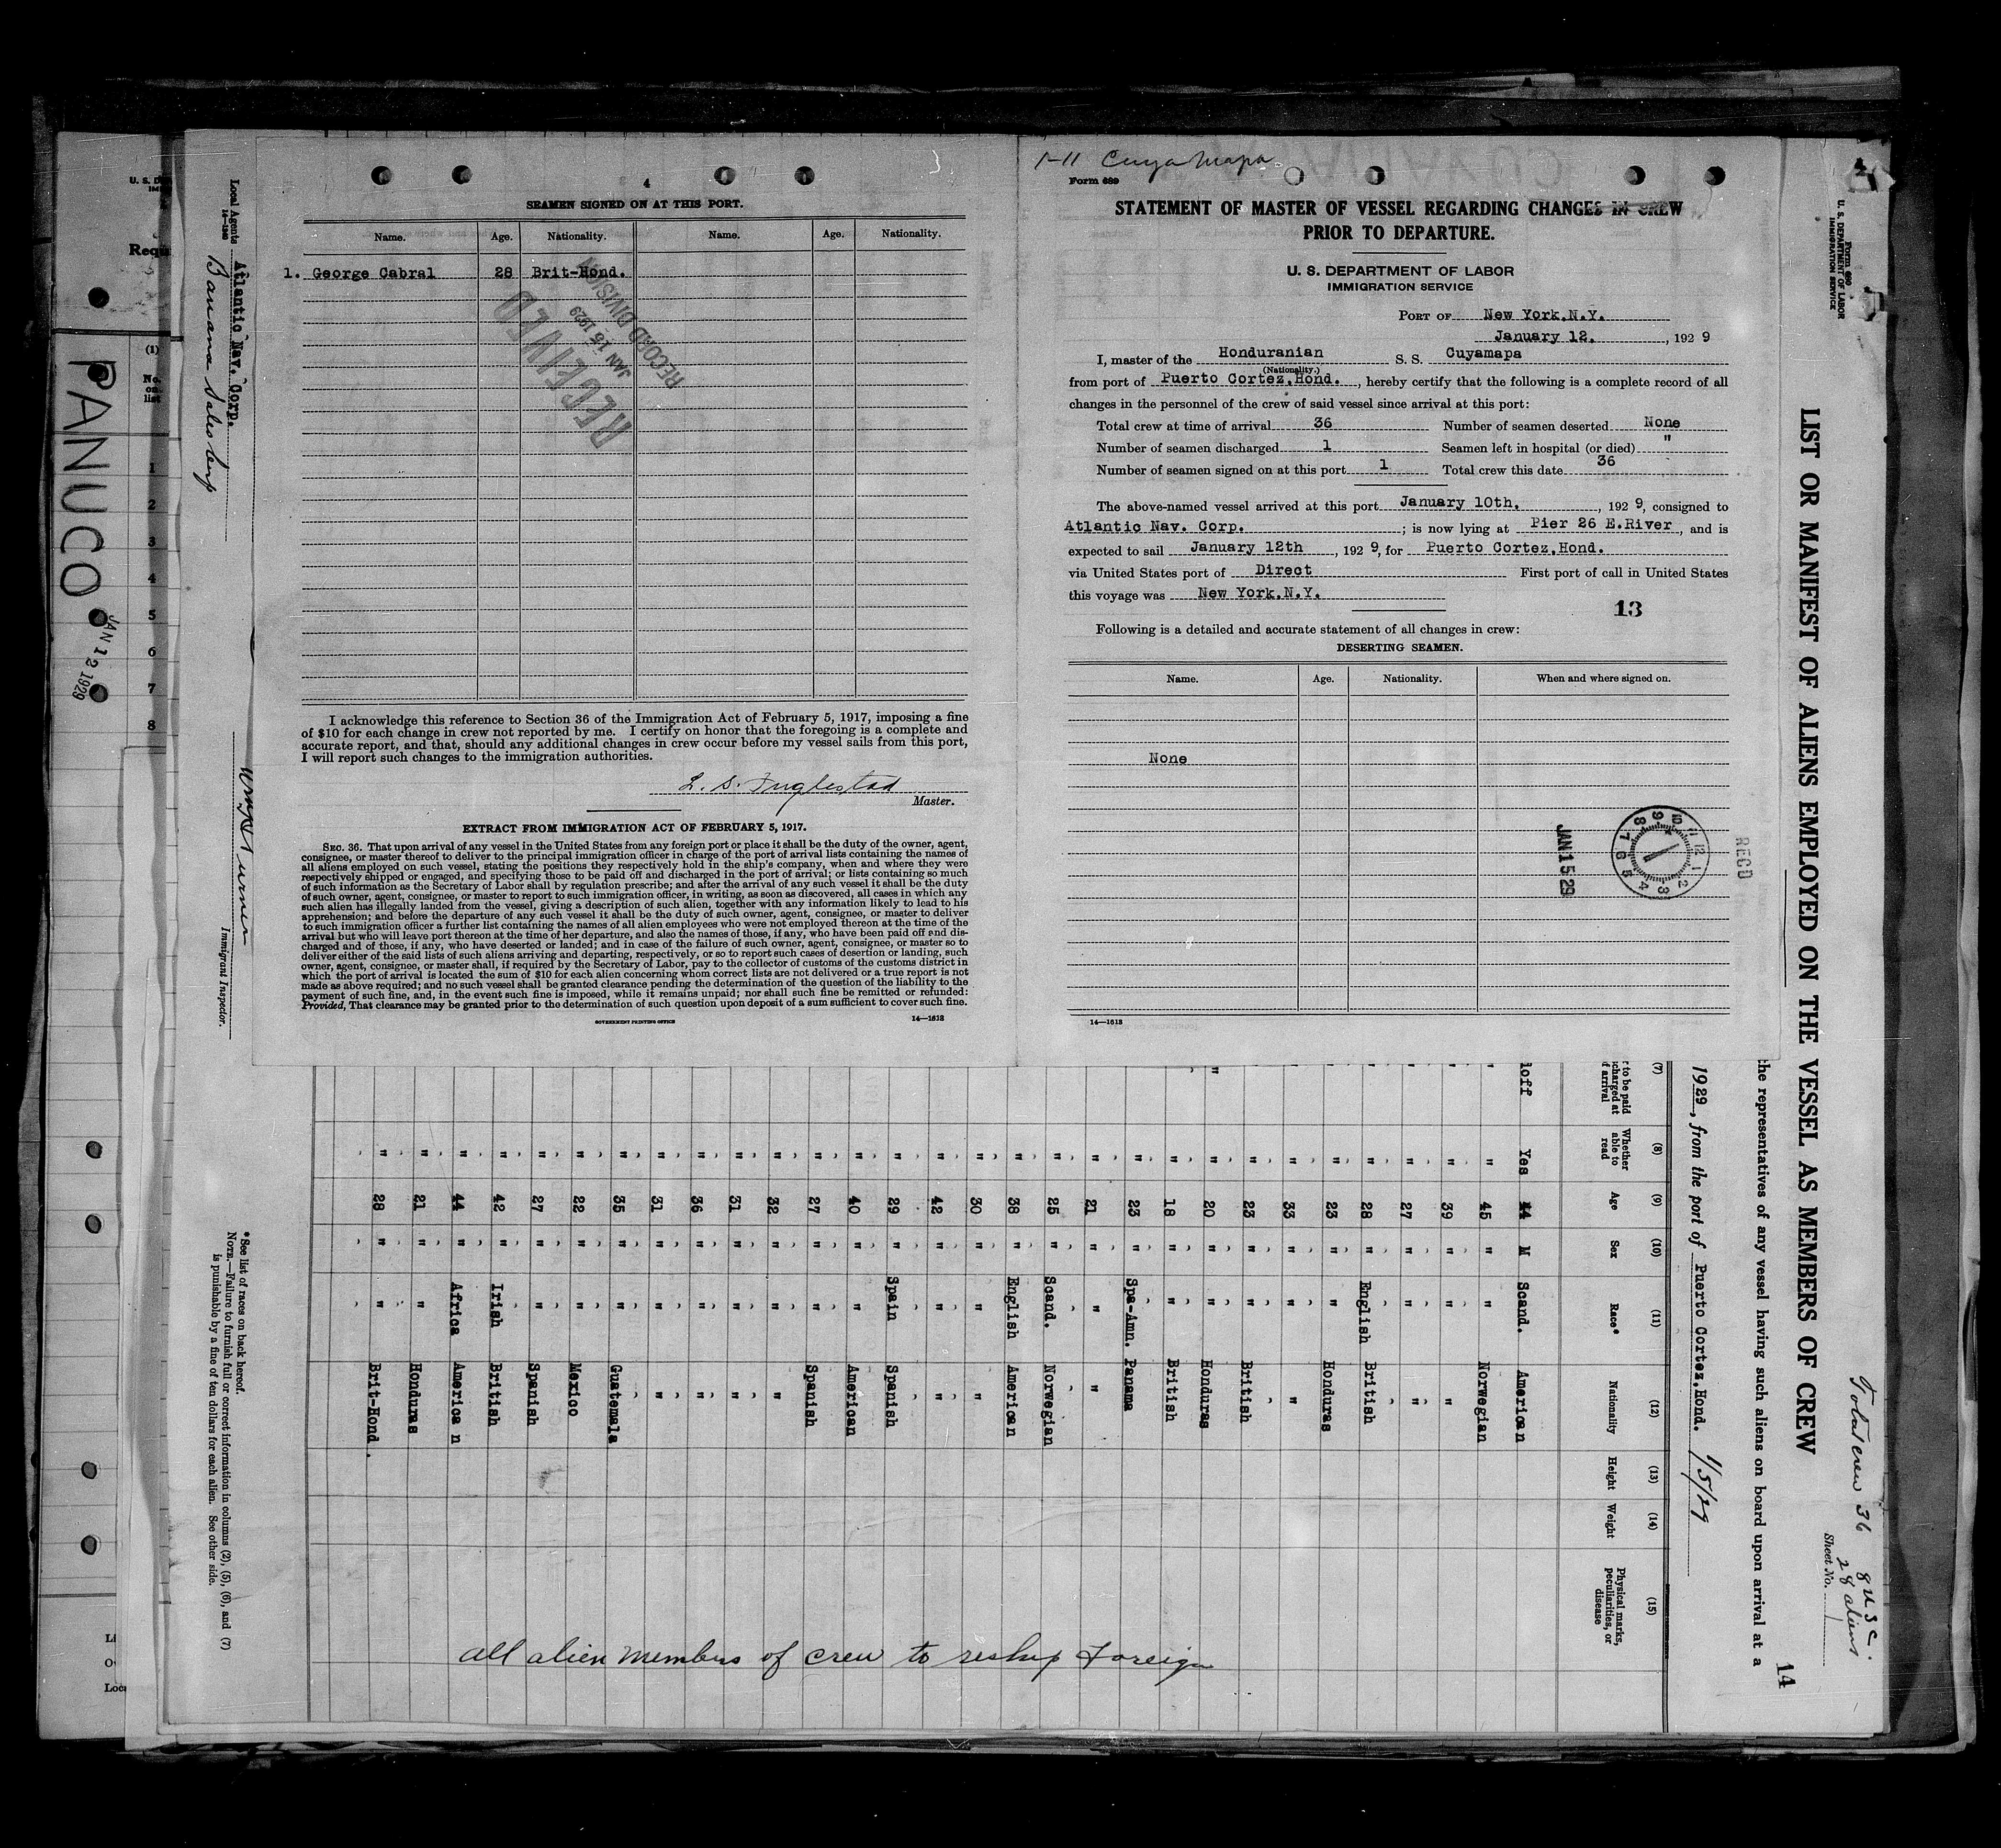 4
SEAMEN SIGNED ON AT THIS PORT.
Name. Age. Nationality. Name. Age. Nationality.
1. George Cabral 28 Brit-Hond.
RECEIVED
JAN 15 1929
RECORD DIVISION
I acknowledge this reference to Section 36 of the Immigration Act of February 5, 1917, imposing a fine
of $10 for each change in crew not reported by me. I certify on honor that the foregoing is a complete and
accurate report, and that, should any additional changes in crew occur before my vessel sails from this port,
I will report such changes to the immigration authorities.
Master.
EXTRACT FROM IMMIGRATION ACT OF FEBRUARY 5, 1917.
SEC. 36. That upon arrival of any vessel in the United States from any foreign port or place it shall be the duty of the owner, agent,
consignee, or master thereof to deliver to the principal immigration officer in charge of the port of arrival lists containing the names of
all aliens employed on such vessel, stating the positions they respectively hold in the ship's company, when and where they were
respectively shipped or engaged, and specifying those to be paid off and discharged in the port of arrival; or lists containing so much
of such information as the Secretary of Labor shall by regulation prescribe; and after the arrival of any such vessel it shall be the duty
of such owner, agent, consignee, or master to report to such immigration officer, in writing, as soon as discovered, all cases in which any
such alien has illegally landed from the vessel, giving a description of such alien, together with any information likely to lead to his
apprehension; and before the departure of any such vessel it shall be the duty of such owner, agent, consignee, or master to deliver
to such immigration officer a further list containing the names of all alien employees who were not employed thereon at the time of the
arrival but who will leave port thereon at the time of her departure, and also the names of those, if any, who have been paid off and dis-
charged and of those, if any, who have deserted or landed; and in case of the failure of such owner, agent, consignee, or master so to
deliver either of the said lists of such aliens arriving and departing, respectively, or so to report such cases of desertion or landing, such
owner, agent, consignee, or master shall, if required by the Secretary of Labor, pay to the collector of customs of the customs district in
which the port of arrival is located the sum of $10 for each alien concerning whom correct lists are not delivered or a true report is not
made as above required; and no such vessel shall be granted clearance pending the determination of the question of the liability to the
payment of such fine, and, in the event such fine is imposed, while it remains unpaid; nor shall such fine be remitted or refunded:
Provided, That clearance may be granted prior to the determination of such question upon deposit of a sum sufficient to cover such fine.
GOVERNMENT PRINTING OFFICE 14—1613
1-11 Cuyamapa
Form 689
STATEMENT OF MASTER OF VESSEL REGARDING CHANGES IN CREW
PRIOR TO DEPARTURE.
U. S. DEPARTMENT OF LABOR
IMMIGRATION SERVICE
PORT OF New York.N.Y.
January 12. , 1929
I, master of the Honduranian S. S. Cuyamapa
(Nationality.)
from port of Puerto Cortez.Hond. , hereby certify that the following is a complete record of all
changes in the personnel of the crew of said vessel since arrival at this port:
Total crew at time of arrival 36 Number of seamen deserted None
Number of seamen discharged 1 Seamen left in hospital (or died) "
Number of seamen signed on at this port 1 Total crew this date 36
The above-named vessel arrived at this port January 10th. , 1929, consigned to
Atlantic Nav. Corp. ; is now lying at Pier 26 E.River , and is
expected to sail January 12th , 1929, for Puerto Cortez.Hond.
via United States port of Direct First port of call in United States
this voyage was New York.N.Y.
13
Following is a detailed and accurate statement of all changes in crew:
DESERTING SEAMEN.
Name. Age. Nationality. When and where signed on.
None
JAN 15 29
REC'D
14—1613
Form 680
U. S. DEPARTMENT OF LABOR
IMMIGRATION SERVICE
LIST OR MANIFEST OF ALIENS EMPLOYED ON THE VESSEL AS MEMBERS OF CREW
Total crew 36 8 USC.
28 aliens
Sheet No. 1
14
the representatives of any vessel having such aliens on board upon arrival at a
1929, from the port of Puerto Cortez.Hond. 1/5/29
(7) (8) (9) (10) (11) (12) (13) (14) (15)
Whether able to read Age Sex Race* Nationality Height Weight Physical marks, peculiarities, or disease
loff Yes 44 M Scand. American
" 45 " " Norwegian
" 39 " " "
" 27 " " "
" 28 " English British
" 23 " " Honduras
" 33 " " "
" 23 " " British
" " 20 " " Honduras
" 18 " " British
" 23 " Spa-Amn. Panama
" 21 " " "
" 25 " Scand. Norwegian
" 38 " English American
" 30 " " "
" 42 " " "
" 29 " Spain Spanish
" 40 " " American
" 27 " " Spanish
" 32 " " "
" 31 " " "
" 36 " " "
" 31 " " "
" 35 " " Guatemala
" 22 " " Mexico
" 27 " " Spanish
" 42 " Irish British
" 44 " Africa America n
" 21 " " Honduras
" 28 " " Brit-Hond.
all alien members of crew to reship foreign
*See list of races on back hereof.
NOTE.—Failure to furnish full or correct information in columns (2), (5), (6), and (7)
is punishable by a fine of ten dollars for each alien. See other side.
Immigrant Inspector.
Local Agents Atlantic Nav. Corp.
14-1240
Banana Sales Corp
PANUCO
JAN 12 1929
U. S. D
Requ
(1)
No. on list
1
2
3
4
5
6
7
8